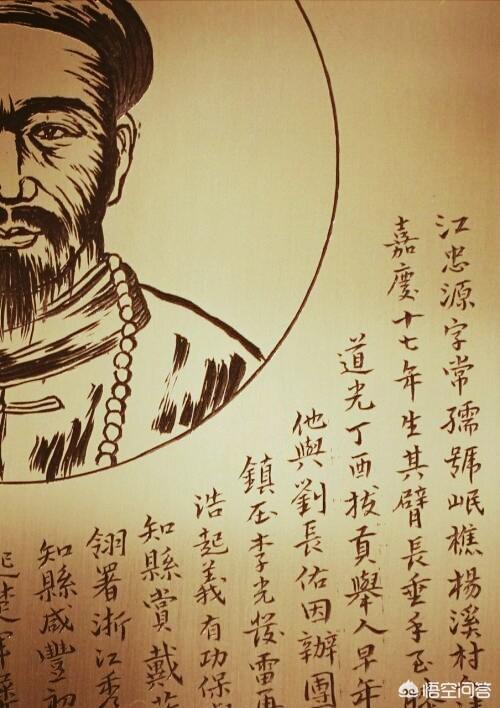 江忠源字常孺號岷樵楊溪村
嘉慶十七年生其臂長垂手至膝
道光丁酉拔貢舉人早年
他與劉長佑因辦團
鎮压李光發雷再
浩起義有功保
知縣賞戴
翎署浙江秀
知縣咸豐初
悟空问答